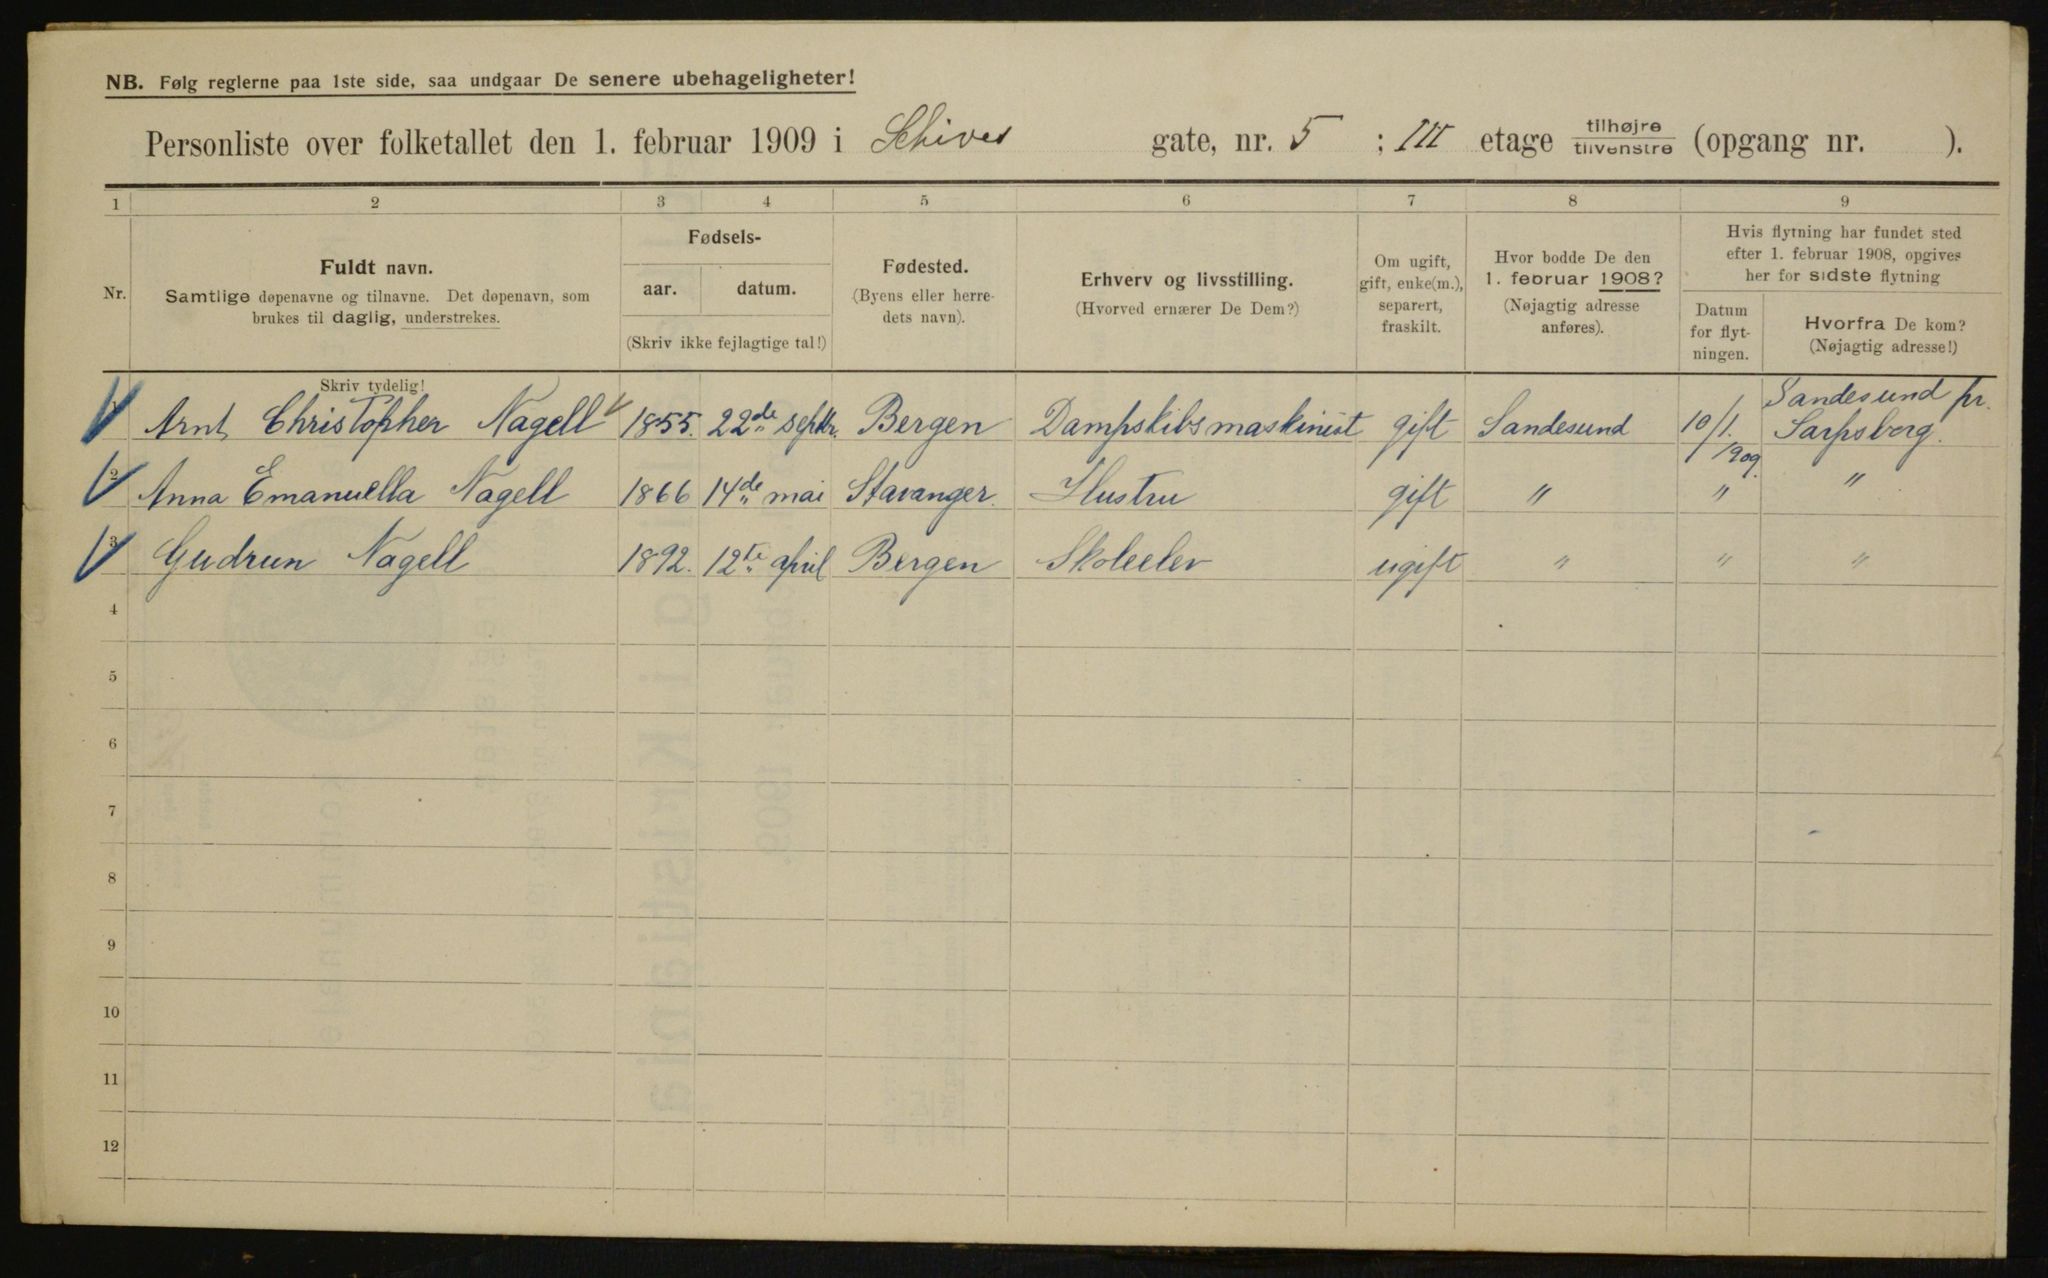 NB. Følg reglerne paa 1ste side, saa undgaar De senere ubehageligheter!
Personliste over folketallet den 1. februar 1909 i Schives gate, nr. 5 ; III etage tilhøjre tilvenstre (opgang nr. ).
1 2 3 4 5 6 7 8 9
Nr.
Fuldt navn.
Samtlige døpenavne og tilnavne. Det døpenavn, som
brukes til daglig, understrekes.
Fødsels-
aar. datum.
(Skriv ikke fejlagtige tal!)
Fødested.
(Byens eller herre-
dets navn).
Erhverv og livsstilling.
(Hvorved ernærer De Dem?)
Om ugift,
gift, enke(m.),
separert,
fraskilt.
Hvor bodde De den
1. februar 1908?
(Nøjagtig adresse
anføres).
Hvis flytning har fundet sted
efter 1. februar 1908, opgives
her for sidste flytning
Datum
for flyt-
ningen.
Hvorfra De kom?
(Nøjagtig adresse!)
Skriv tydelig!
1 Arnt Christopher Nagell 1855. 22de septbr. Bergen Dampskibsmaskinist gift Sandesund 10/1. 1909. Sandesund pr. Sarpsborg.
2 Anna Emanuella Nagell 1866 14de mai Stavanger. Hustru gift " " "
3 Gudrun Nagell 1892. 12te april Bergen Skoleelev ugift " " "
4
5
6
7
8
9
10
11
12